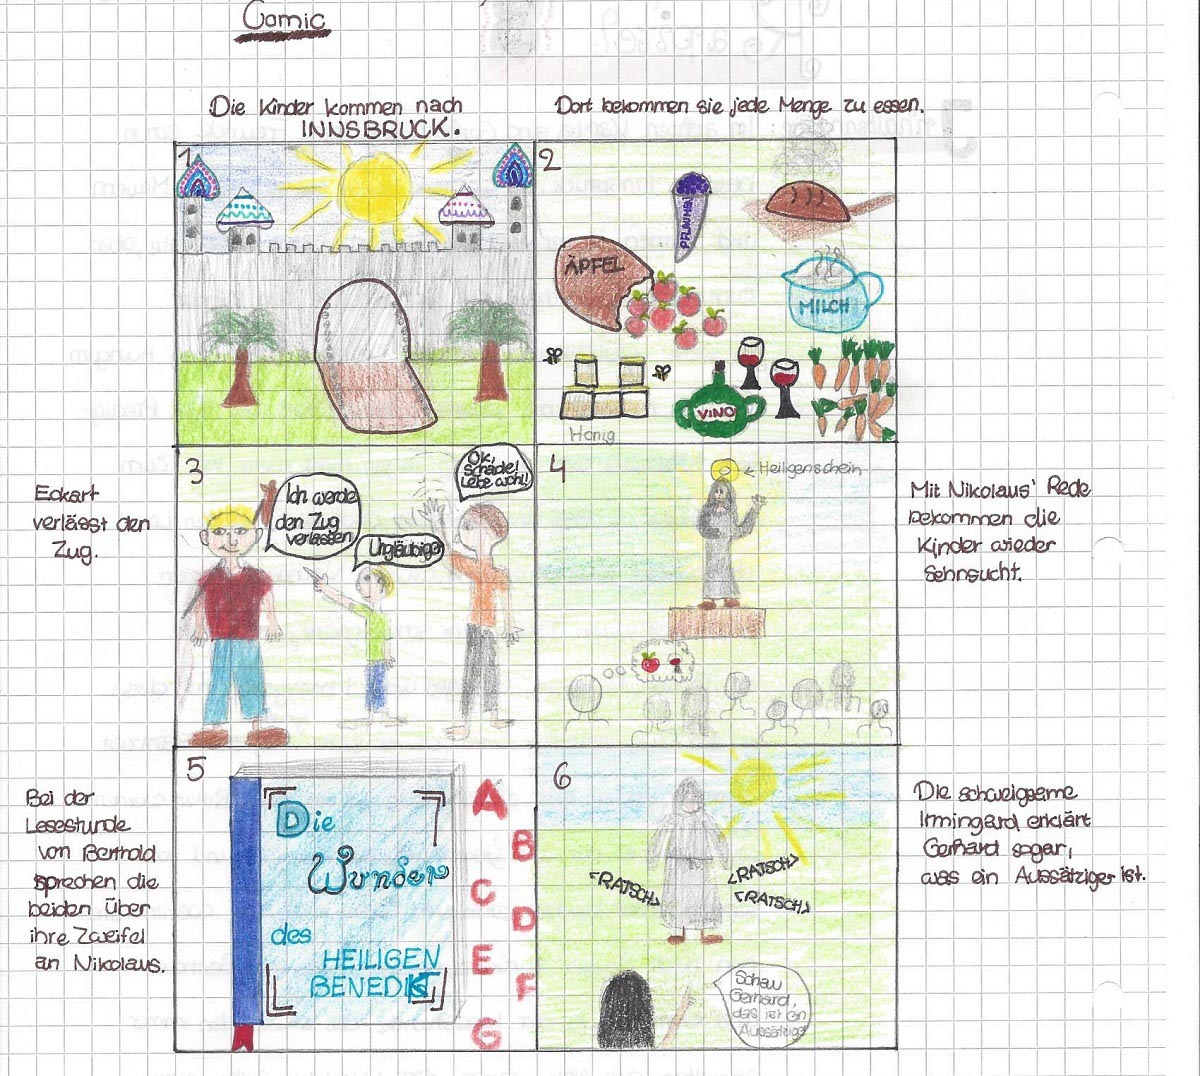 Comic
Die Kinder kommen nach
INNSBRUCK.
Dort bekommen sie jede Menge zu essen.
1
2
PFLAUMEN
ÄPFEL
MILCH
VINO
Honig
Eckart
verlässt den
Zug.
3
Ich werde
den Zug
verlassen
Ungläubiger
Ok,
Schade!
Lebe wohl!
4
Heiligenschein
Mit Nikolaus' Rede
bekommen die
Kinder wieder
Sehnsucht.
Bei der
Lesestunde
von Berthold
sprechen die
beiden über
ihre Zweifel
an Nikolaus.
5
Die
Wunder
des
HEILIGEN
BENEDIKT
A
B
C
D
E
F
G
6
<RATSCH>
<RATSCH>
<RATSCH>
Schau
Gerhard,
das ist ein
Aussätziger
Die schweigsame
Irmingard erklärt
Gerhard sogar,
was ein Aussätziger ist.